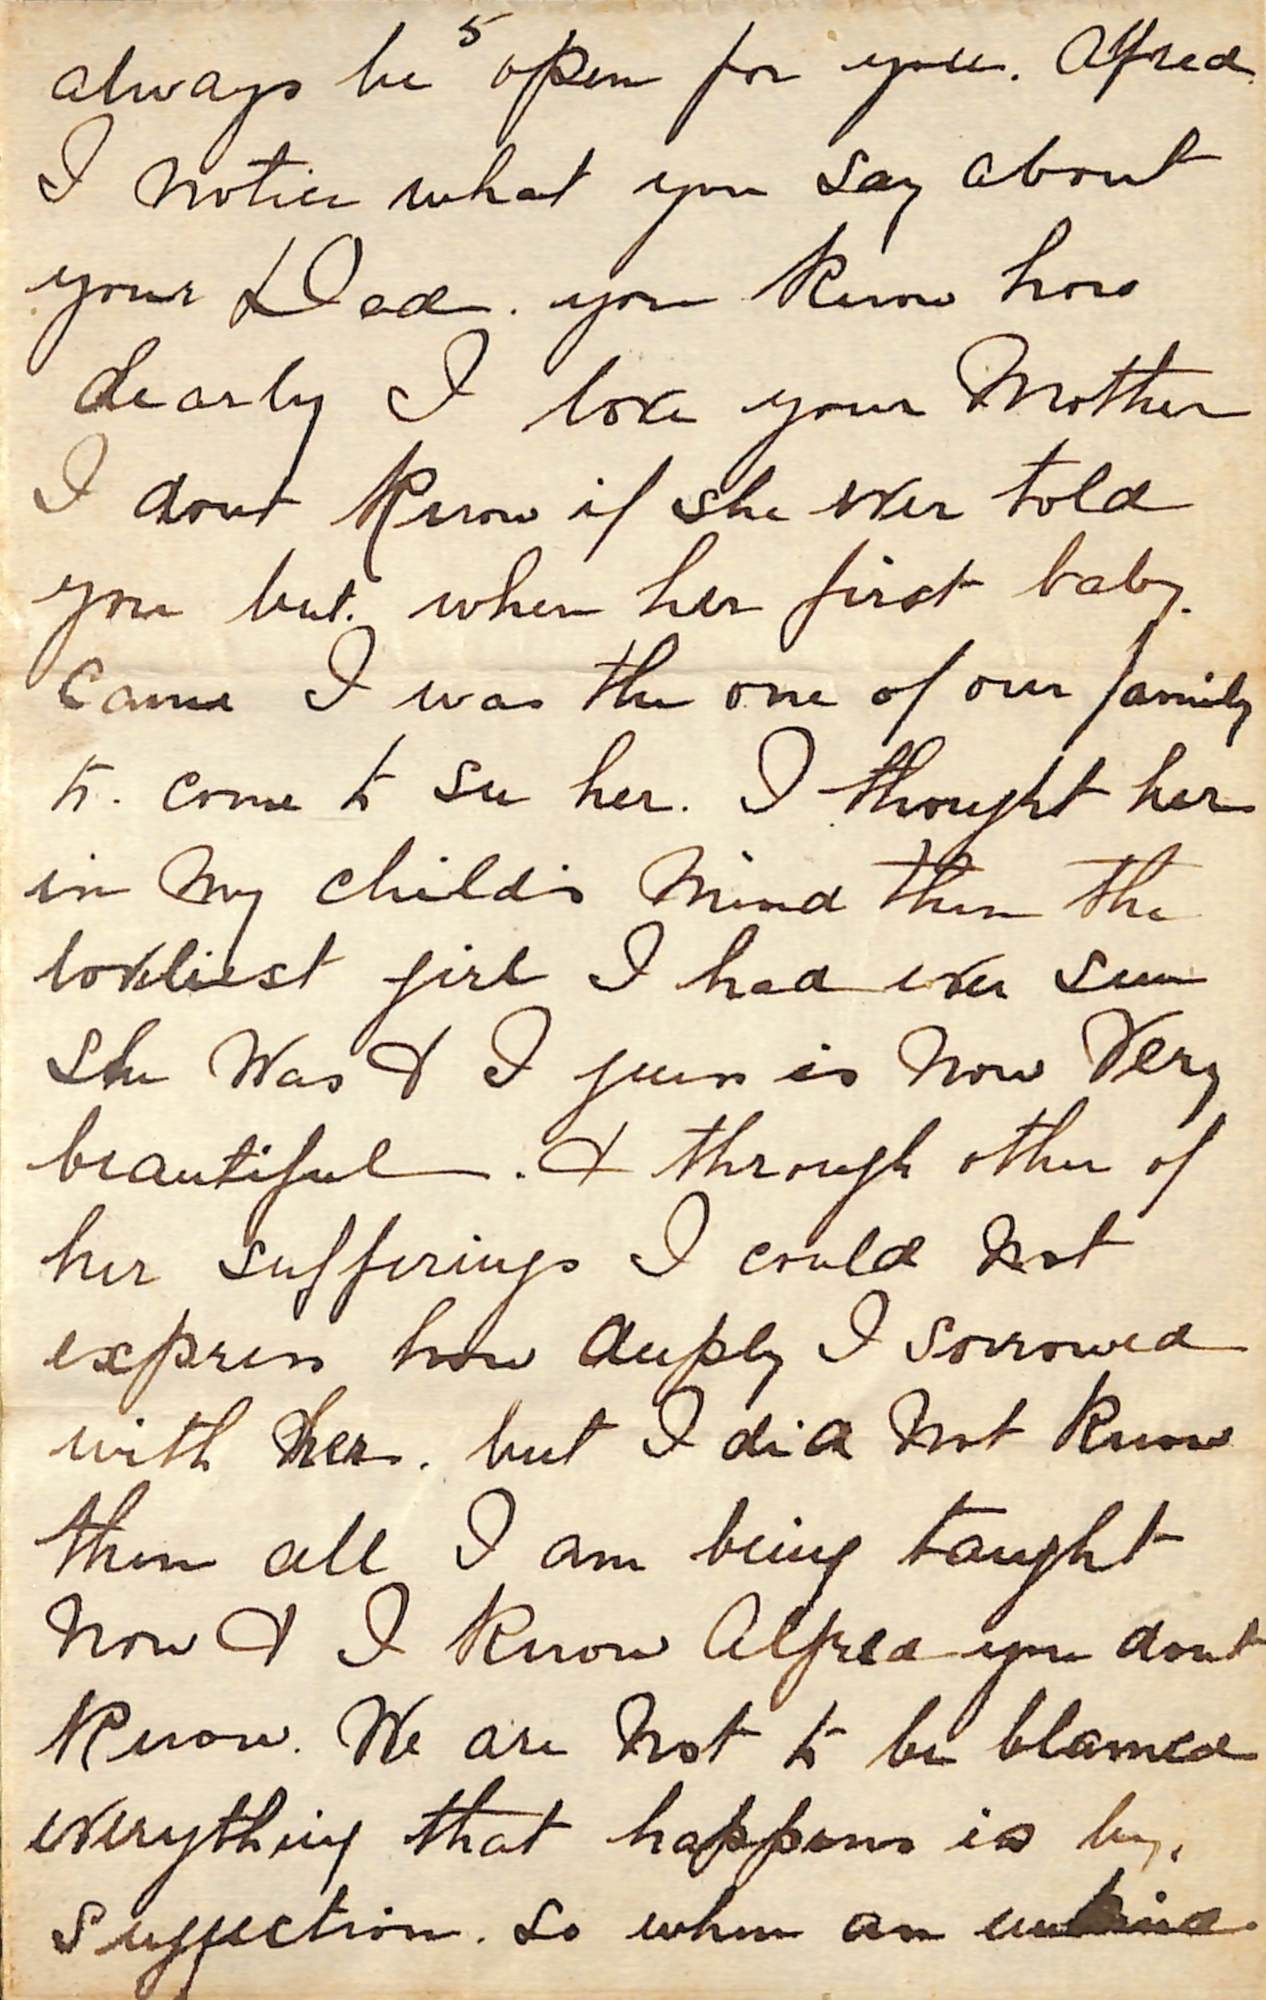 5
always be open for you. Alfred
I notice what you say about
your Dad. you know how
dearly I love your Mother
I dont know if she ever told
you but. when her first baby.
came I was the one of our family
to. come to see her. I thought her
in my child's mind then the
lovliest girl I had ever seen
she was & I guess is now very
beautiful. & through other of
her sufferings I could not
express how deeply I sorrowed
with her. but I did not know
then all I am being taught
now & I know Alfred you dont
know. We are not to be blamed
everything that happens is by.
suggection. So when an unkind